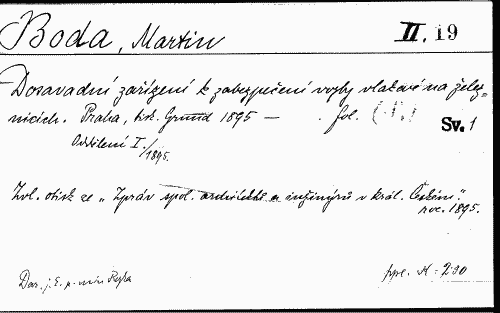 Boda, Martin
II. 19
Dosavadní zařízení k zabezpečení vozby vlakové na želez-
nicích. Praha, tisk. Grund 1895 — fol.
Sv. 1
Oddělení I./1895.
Zvl. otisk ze „Zpráv spol. architektů a inžinýrů v král. Českém".
roč. 1895.
Dar. j. E. p. min